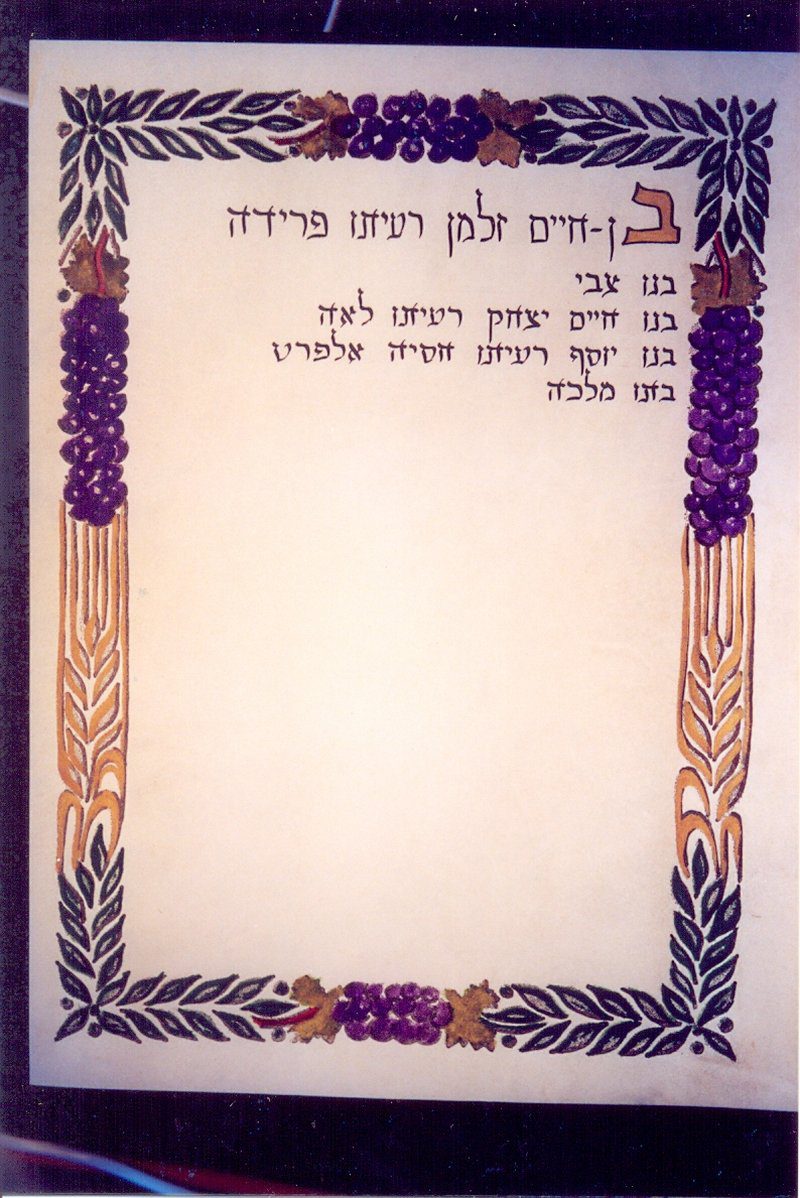 בן-חיים זלמן רעיתו פרידה
בנו צבי
בנו חיים יצחק רעיתו לאה
בנו יוסף רעיתו חסיה אלפרט
בתו מלכה